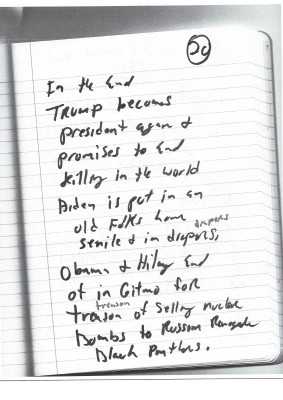 20
In the End
Trump becomes
president again &
promises to End
killing in the world
Biden is put in an
old Folks home diapers
senile & in diapers,
Obama & Hilary End
up in Gitmo for
treason
treason of Selling nuclear
bombs to Russian Renegade
Black Panthers.